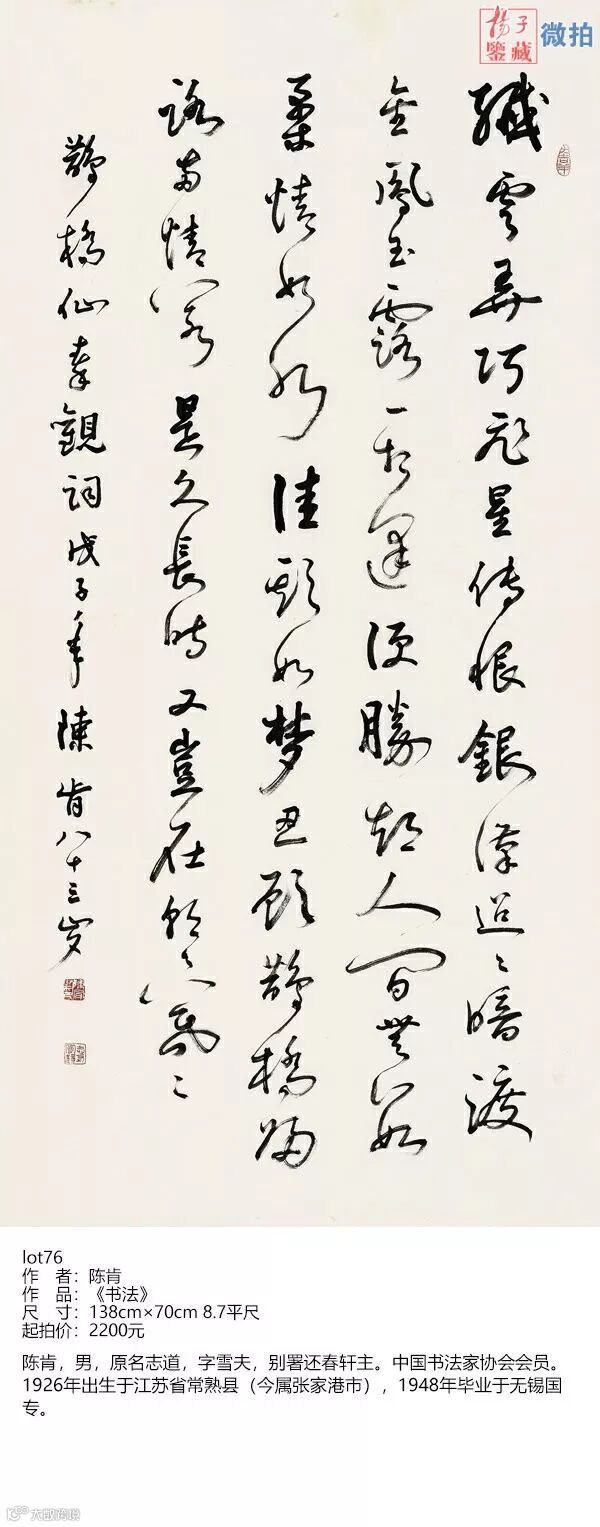 楊子
鑒藏
微拍
纖雲弄巧飛星传恨銀漢迢々暗渡
金鳳玉露一相逢便勝却人間無數
柔情如水佳期如梦忍顧鵲橋歸
路两情若是久長時又豈在朝々暮々
鵲橋仙秦觀詞戊子年陳肯八十三岁
lot76
作 者：陈肯
作 品：《书法》
尺 寸：138cm×70cm 8.7平尺
起拍价：2200元
陈肯，男，原名志道，字雪夫，别署还春轩主。中国书法家协会会员。
1926年出生于江苏省常熟县（今属张家港市），1948年毕业于无锡国
专。
大数跨境